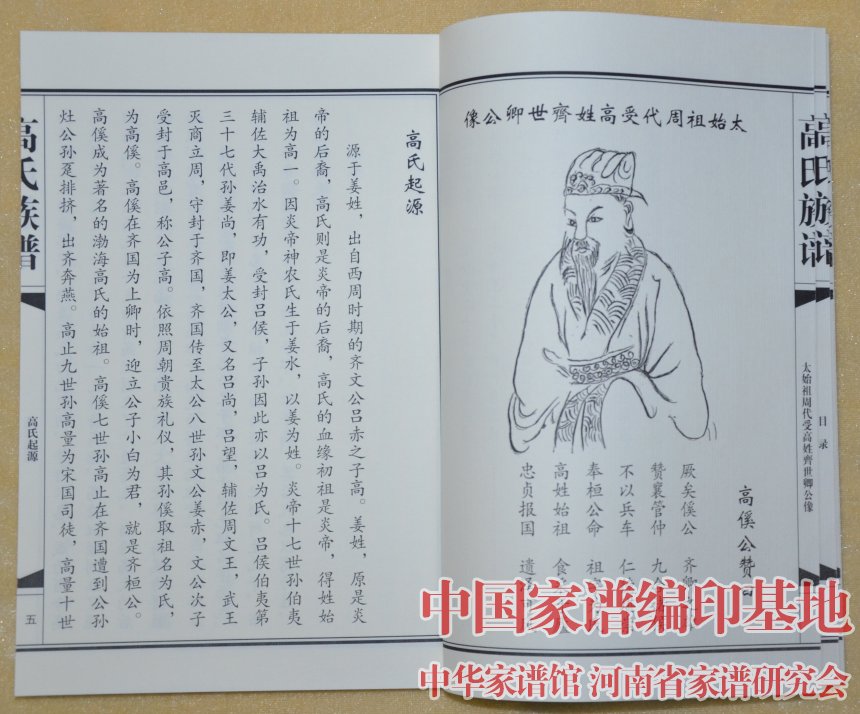 高氏族谱
太始祖周代受高姓齊世卿公像
目录
太始祖周代受高姓齊世卿公像
高傒公赞
厥矣傒公 齐卿
赞襄管仲 九
不以兵车 仁
奉桓公命 祖
高姓始祖 食
忠贞报国 遗泽
高氏起源
源于姜姓，出自西周时期的齐文公吕赤之子高。姜姓，原是炎
帝的后裔，高氏则是炎帝的后裔，高氏的血缘初祖是炎帝，得姓始
祖为高一。因炎帝神农氏生于姜水，以姜为姓。炎帝十七世孙伯夷
辅佐大禹治水有功，受封吕侯，子孙因此亦以吕为氏。吕侯伯夷第
三十七代孙姜尚，即姜太公，又名吕尚，吕望，辅佐周文王，武王
灭商立周，守封于齐国，齐国传至太公八世孙文公姜赤，文公次子
受封于高邑，称公子高。依照周朝贵族礼仪，其孙傒取祖名为氏，
为高傒。高傒在齐国为上卿时，迎立公子小白为君，就是齐桓公。
高傒成为著名的渤海高氏的始祖。高傒七世孙高止在齐国遭到公孙
灶公孙趸排挤，出齐奔燕。高止九世孙高量为宋国司徒，高量十世
高氏族谱
高氏起源
五
中国家谱编印基地
中华家谱馆 河南省家谱研究会